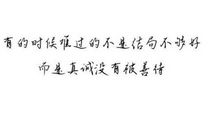 有的时候难过的不是结局不够好
而是真诚没有被善待